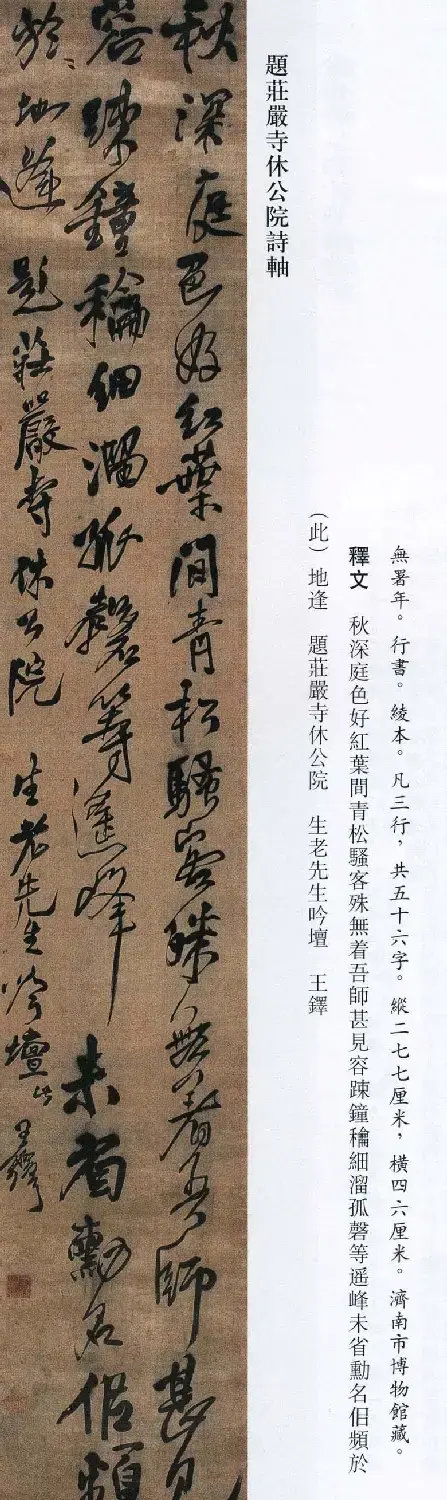 無署年。行書。綾本。凡三行，共五十六字。縱二七七厘米，橫四六厘米。濟南市博物館藏。
釋文 秋深庭色好紅葉間青松騷客殊無着吾師甚見容踈鐘稐細溜孤磬等遥峰未省勳名佀頻於
（此）地逢 題莊嚴寺休公院 生老先生吟壇 王鐸
題莊嚴寺休公院詩軸
秋深庭色好紅葉間青松騷客殊無着吾師甚見
容踈鐘稐細溜孤磬等遥峰未省勳名佀頻
於地逢 題莊嚴寺休公院 生老先生吟壇 此 王鐸